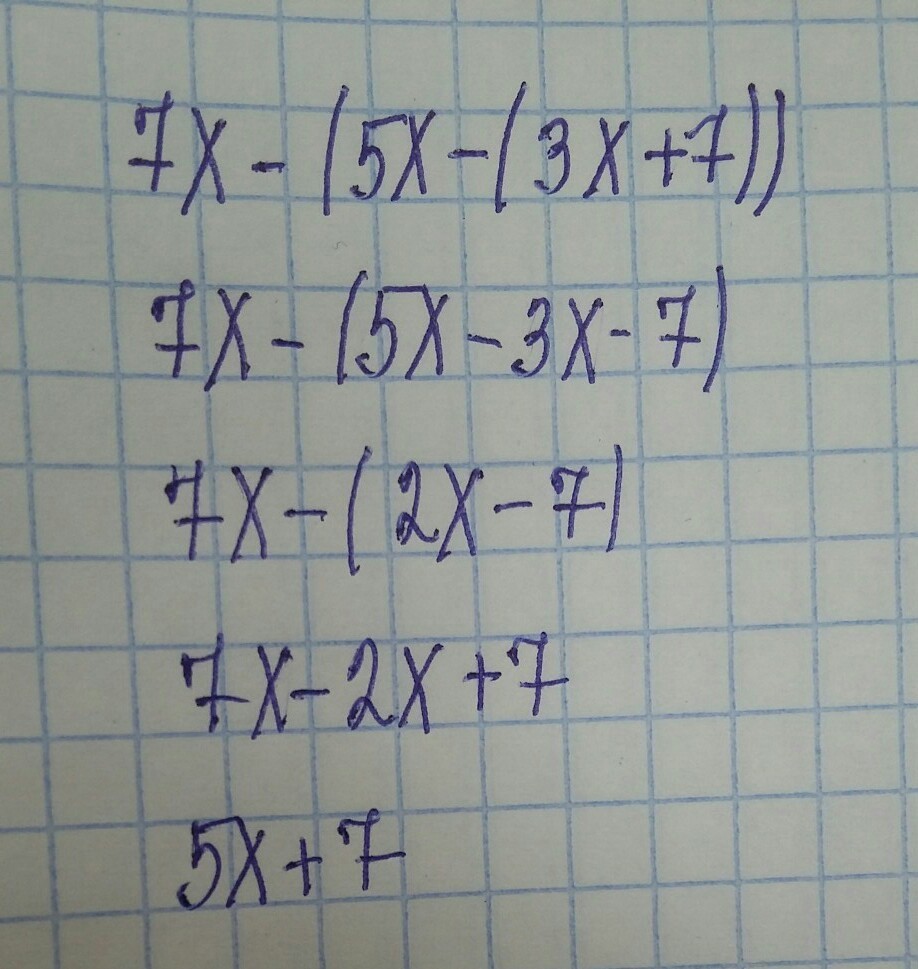 7x-(5x-(3x+7))
7x-(5x-3x-7)
7x-(2x-7)
7x-2x+7
5x+7